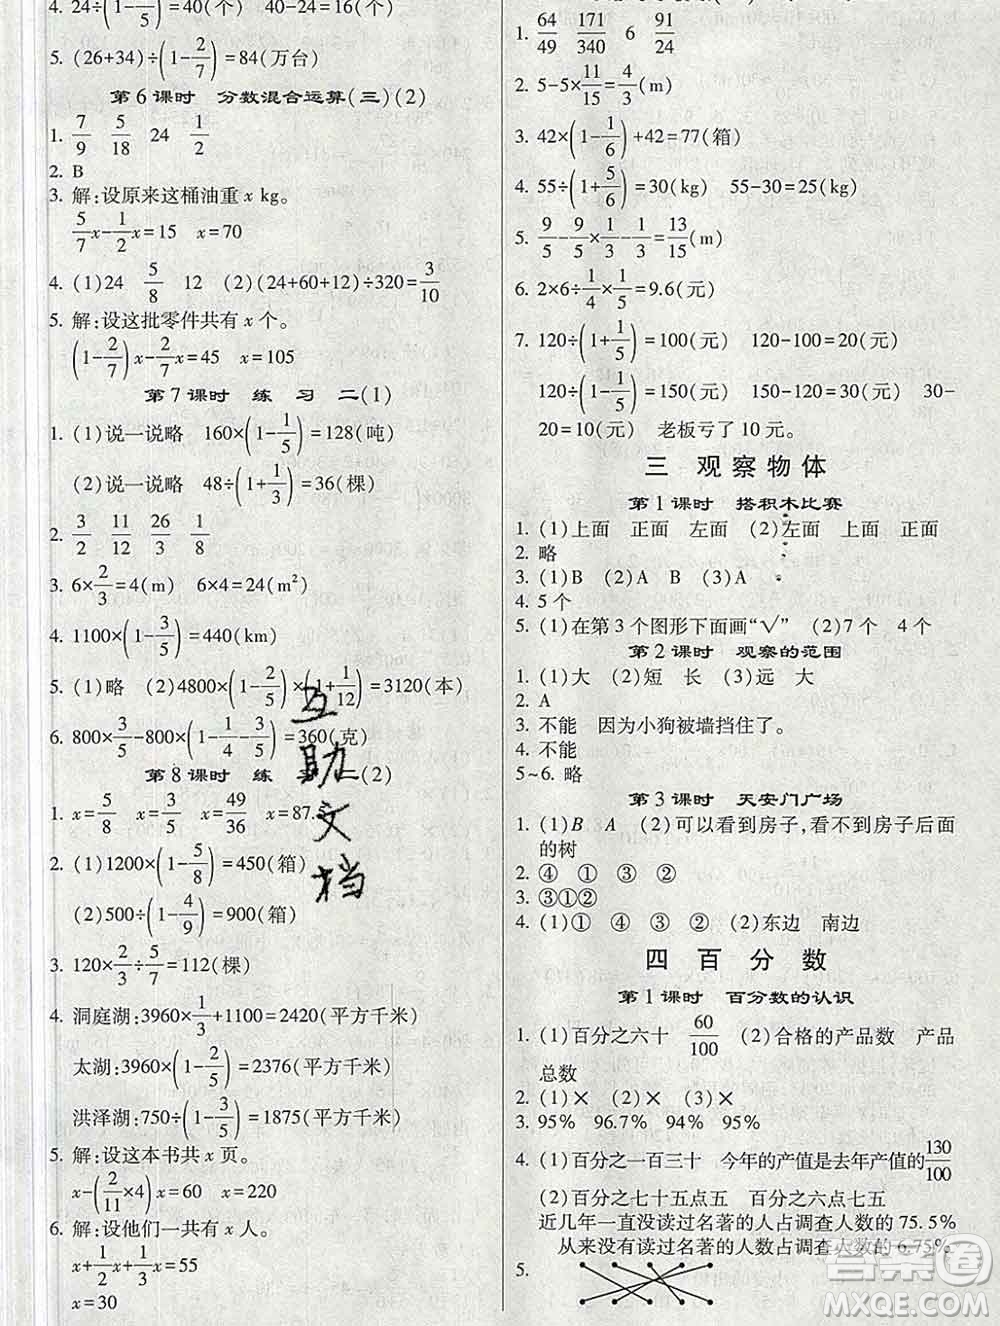 4. 24÷(1-2/5)=40(个)　40-24=16(个)
5. (26+34)÷(1-2/7)=84(万台)
第6课时　分数混合运算(三)(2)
1. 7/9　5/18　24　1/2
2. B
3. 解:设原来这桶油重 x kg。
5/7x-1/2x=15　x=70
4. (1)24　5/8　12　(2)(24+60+12)÷320=3/10
5. 解:设这批零件共有 x 个。
(1-2/7)x-2/7x=45　x=105
第7课时　练　习　二(1)
1. (1)说一说略　160×(1-1/5)=128(吨)
(2)说一说略　48÷(1+1/3)=36(棵)
2. 3/2　11/12　26/3　1/8
3. 6×2/3=4(m)　6×4=24(m²)
4. 1100×(1-3/5)=440(km)
5. (1)略　(2)4800×(1-2/5)×(1+1/12)=3120(本)
6. 800×3/5-800×(1-1/4-3/5)=360(克)
第8课时　练　二(2)
1. x=5/8　x=3/5　x=49/36　x=87.5
2. (1)1200×(1-5/8)=450(箱)
(2)500÷(1-4/9)=900(箱)
3. 120×2/3÷5/7=112(棵)
4. 洞庭湖:3960×1/3+1100=2420(平方千米)
太湖:3960×(1-2/5)=2376(平方千米)
洪泽湖:750÷(1-3/5)=1875(平方千米)
5. 解:设这本书共有 x 页。
x-(2/11×4)x=60　x=220
6. 解:设他们一共有 x 人。
x+1/2x+1/3x=55
x=30
1. 64/49　171/340　6　91/24
2. 5-5×11/15=4/3(m)
3. 42×(1-1/6)+42=77(箱)
4. 55÷(1+5/6)=30(kg)　55-30=25(kg)
5. 9/5-9/5×1/3-1/3=13/15(m)
6. 2×6÷1/4×1/5=9.6(元)
7. 120÷(1+1/5)=100(元)　120-100=20(元)
120÷(1-1/5)=150(元)　150-120=30(元)　30-
20=10(元)　老板亏了 10 元。
三　观察物体
第1课时　搭积木比赛
1. (1)上面　正面　左面　(2)左面　上面　正面
2. 略
3. (1)B　(2)A　B　(3)A
4. 5 个
5. (1)在第 3 个图形下面画“√”　(2)7 个　4 个
第2课时　观察的范围
1. (1)大　(2)短　长　(3)远　大
2. A
3. 不能　因为小狗被墙挡住了。
4. 不能
5~6. 略
第3课时　天安门广场
1. (1)B　A　(2)可以看到房子,看不到房子后面
的树
2. ④　①　③　②
3. ③①②
4. (1)①　④　③　②　(2)东边　南边
四　百　分　数
第1课时　百分数的认识
1. (1)百分之六十　60/100　(2)合格的产品数　产品
总数
2. (1)×　(2)×　(3)×
3. 95%　96.7%　94%　95%
4. (1)百分之一百三十　今年的产值是去年产值的130/100
(2)百分之七十五点五　百分之六点七五
近几年一直没读过名著的人占调查人数的 75.5%
从来没有读过名著的人数占调查人数的 6.75%
5.
互助文档
答案圈
MXQE.COM